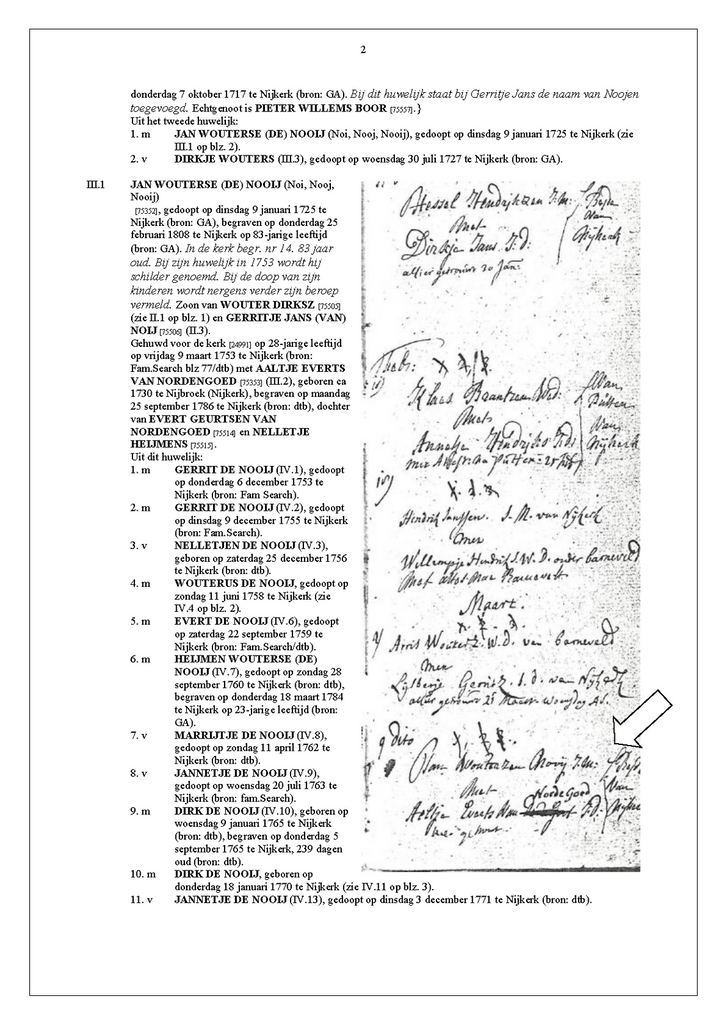 2
donderdag 7 oktober 1717 te Nijkerk (bron: GA). Bij dit huwelijk staat bij Gerritje Jans de naam van Noojen
toegevoegd. Echtgenoot is PIETER WILLEMS BOOR [75557].}
Uit het tweede huwelijk:
1. m JAN WOUTERSE (DE) NOOIJ (Noi, Nooj, Nooij), gedoopt op dinsdag 9 januari 1725 te Nijkerk (zie
III.1 op blz. 2).
2. v DIRKJE WOUTERS (III.3), gedoopt op woensdag 30 juli 1727 te Nijkerk (bron: GA).
III.1 JAN WOUTERSE (DE) NOOIJ (Noi, Nooj,
Nooij)
[75352], gedoopt op dinsdag 9 januari 1725 te
Nijkerk (bron: GA), begraven op donderdag 25
februari 1808 te Nijkerk op 83-jarige leeftijd
(bron: GA). In de kerk begr. nr 14. 83 jaar
oud. Bij zijn huwelijk in 1753 wordt hij
schilder genoemd. Bij de doop van zijn
kinderen wordt nergens verder zijn beroep
vermeld. Zoon van WOUTER DIRKSZ [75505]
(zie II.1 op blz. 1) en GERRITJE JANS (VAN)
NOIJ [75506] (II.3).
Gehuwd voor de kerk [24991] op 28-jarige leeftijd
op vrijdag 9 maart 1753 te Nijkerk (bron:
Fam.Search blz 77/dtb) met AALTJE EVERTS
VAN NORDENGOED [75353] (III.2), geboren ca
1730 te Nijbroek (Nijkerk), begraven op maandag
25 september 1786 te Nijkerk (bron: dtb), dochter
van EVERT GEURTSEN VAN
NORDENGOED [75514] en NELLETJE
HEIJMENS [75515].
Uit dit huwelijk:
1. m GERRIT DE NOOIJ (IV.1), gedoopt
op donderdag 6 december 1753 te
Nijkerk (bron: Fam Search).
2. m GERRIT DE NOOIJ (IV.2), gedoopt
op dinsdag 9 december 1755 te Nijkerk
(bron: Fam.Search).
3. v NELLETJEN DE NOOIJ (IV.3),
geboren op zaterdag 25 december 1756
te Nijkerk (bron: dtb).
4. m WOUTERUS DE NOOIJ, gedoopt op
zondag 11 juni 1758 te Nijkerk (zie
IV.4 op blz. 2).
5. m EVERT DE NOOIJ (IV.6), gedoopt
op zaterdag 22 september 1759 te
Nijkerk (bron: Fam.Search/dtb).
6. m HEIJMEN WOUTERSE (DE)
NOOIJ (IV.7), gedoopt op zondag 28
september 1760 te Nijkerk (bron: dtb),
begraven op donderdag 18 maart 1784
te Nijkerk op 23-jarige leeftijd (bron:
GA).
7. v MARRIJTJE DE NOOIJ (IV.8),
gedoopt op zondag 11 april 1762 te
Nijkerk (bron: dtb).
8. v JANNETJE DE NOOIJ (IV.9),
gedoopt op woensdag 20 juli 1763 te
Nijkerk (bron: fam.Search).
9. m DIRK DE NOOIJ (IV.10), geboren op
woensdag 9 januari 1765 te Nijkerk
(bron: dtb), begraven op donderdag 5
september 1765 te Nijkerk, 239 dagen
oud (bron: dtb).
10. m DIRK DE NOOIJ, geboren op
donderdag 18 januari 1770 te Nijkerk (zie IV.11 op blz. 3).
11. v JANNETJE DE NOOIJ (IV.13), gedoopt op dinsdag 3 december 1771 te Nijkerk (bron: dtb).
Hessel Hendrijksen J.M.
Met
Dirkje Jans J.D.
alhier getrouwt 30 Jan:
Klaas Brantzen Wed:
Met
Annetje Hendrijks
Van Putten
Van Nijkerk
Hendrik Janssen. J. M. van Nijkerk
Met
Willempje Hendriks W. D. onder Barneveld
Maart.
Arris Wouterz. W.D. van Barneveld
Met
9 dito
Jan Wouterzen Nooij J.M.
Met
NordeGoed
Aeltje Everts Van J.D.
Van